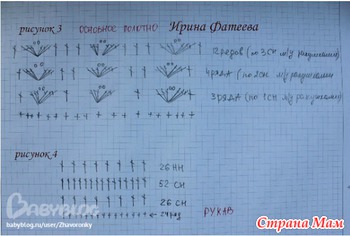 рисунок 3 основное полотно Ирина Фатеева
2 рядов (по 3 СН м/у ракушками)
4 ряда (по 2 СН м/у ракушками
3 ряда (по 1 СН м/у ракушками
рисунок 4
26 НН
52 СН
26 СН
РУКАВ
BABYBLOG
babyblog.ru/user/Zhavoronky
Страна Мам